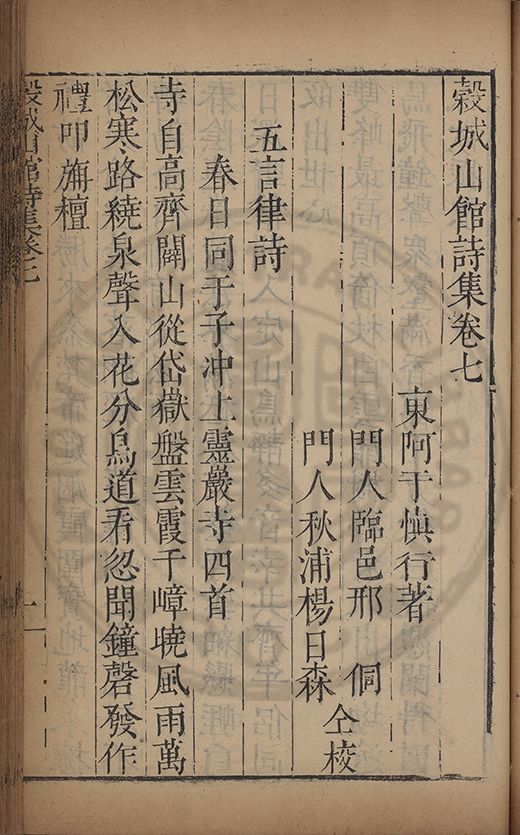 穀城山館詩集卷七
東阿于慎行著
門人臨邑邢侗
門人秋浦楊日森
仝校
五言律詩
春日同于子冲上靈巖寺四首
寺自高齊闢山從岱嶽盤雲霞千嶂曉風雨萬
松寒路繞泉聲入花分鳥道看忽聞鐘磬發作
禮叩旃檀
穀城山館詩集卷七
一